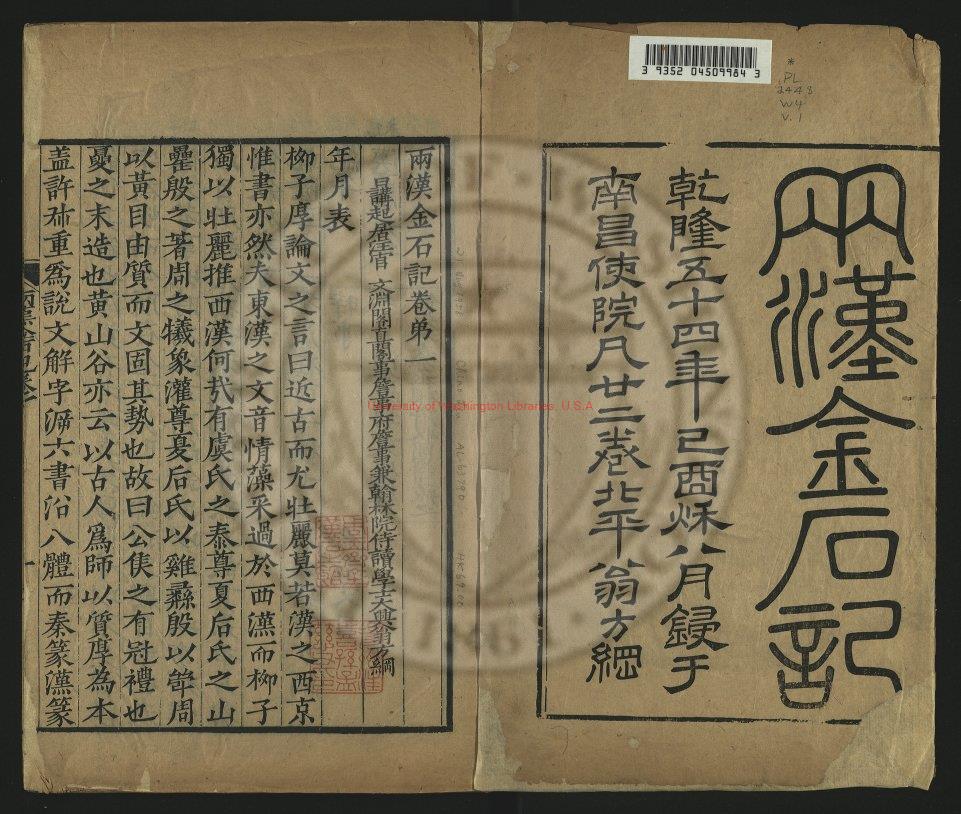 3 9352 04509984 3
*
PL
2448
W4
v.1
兩漢金石記
乾隆五十四年己酉秌八月鋟于
南昌使院凡廿二卷北平翁方綱
University of Washington Libraries, U.S.A
兩漢金石記卷弟一
日講起居注官 文淵閣直閣事詹事府詹事兼翰林院侍讀學士大興翁方綱
年月表
柳子厚論文之言曰近古而尤壯麗莫若漢之西京
惟書亦然夫東漢之文音情藻采過於西漢而柳子
獨以壯麗推西漢何㢤有虞氏之泰尊夏后氏之山
罍殷之著周之犧象灌尊夏后氏以雞彝殷以斝周
以黃目由質而文固其勢也故曰公矦之有冠禮也
夏之末造也黃山谷亦云以古人爲師以質厚為本
盖許祭重爲說文解字㳺六書沿八體而秦篆漢篆